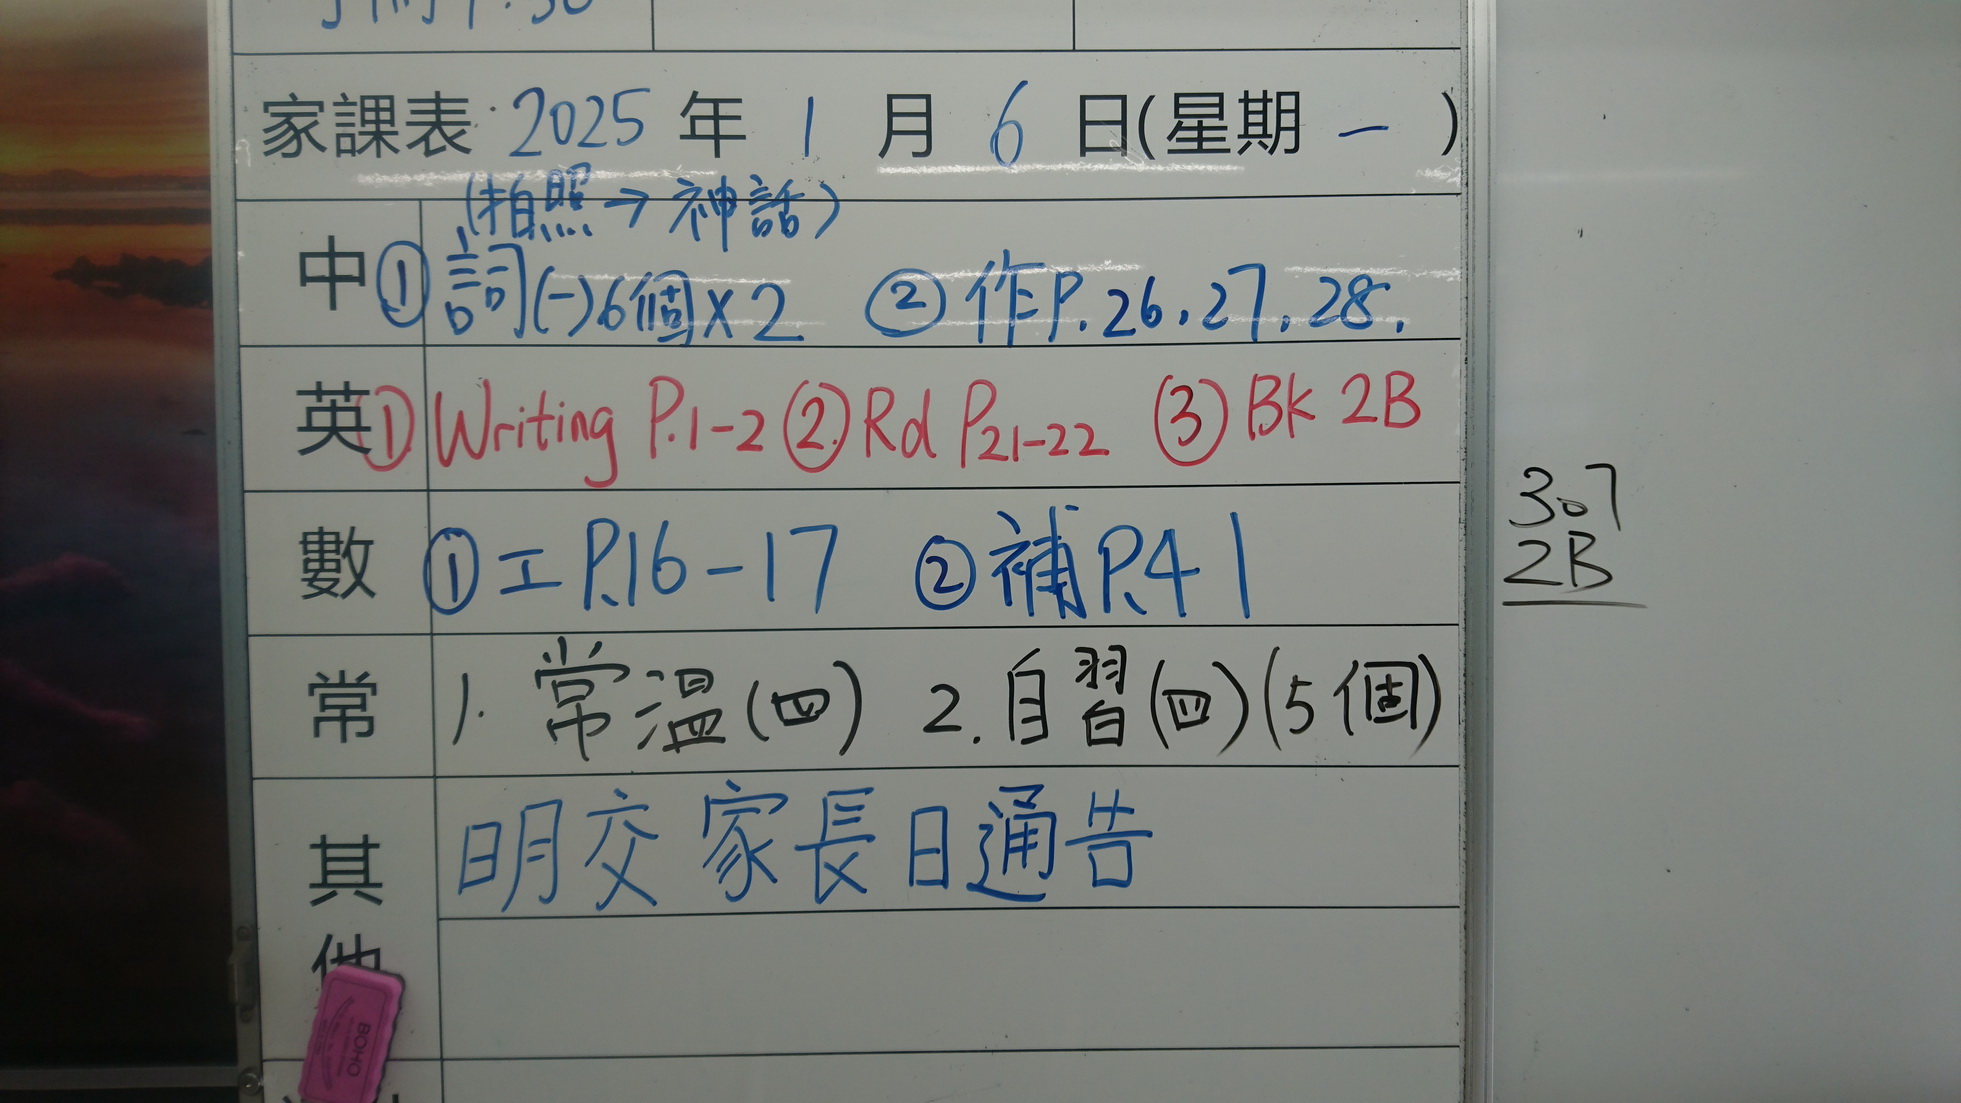 家課表 2025 年 1 月 6 日(星期 一 )
(拍照→神話)
中 ① 詞(一)6個x2 ② 作P.26.27.28.
英 ① Writing P.1-2 ② Rd P21-22 ③ Bk 2B
數 ① 工P.16-17 ② 補P.41
常 1. 常溫(四) 2. 自習(四)(5個)
其他
明交家長日通告
307
2B
BOHO